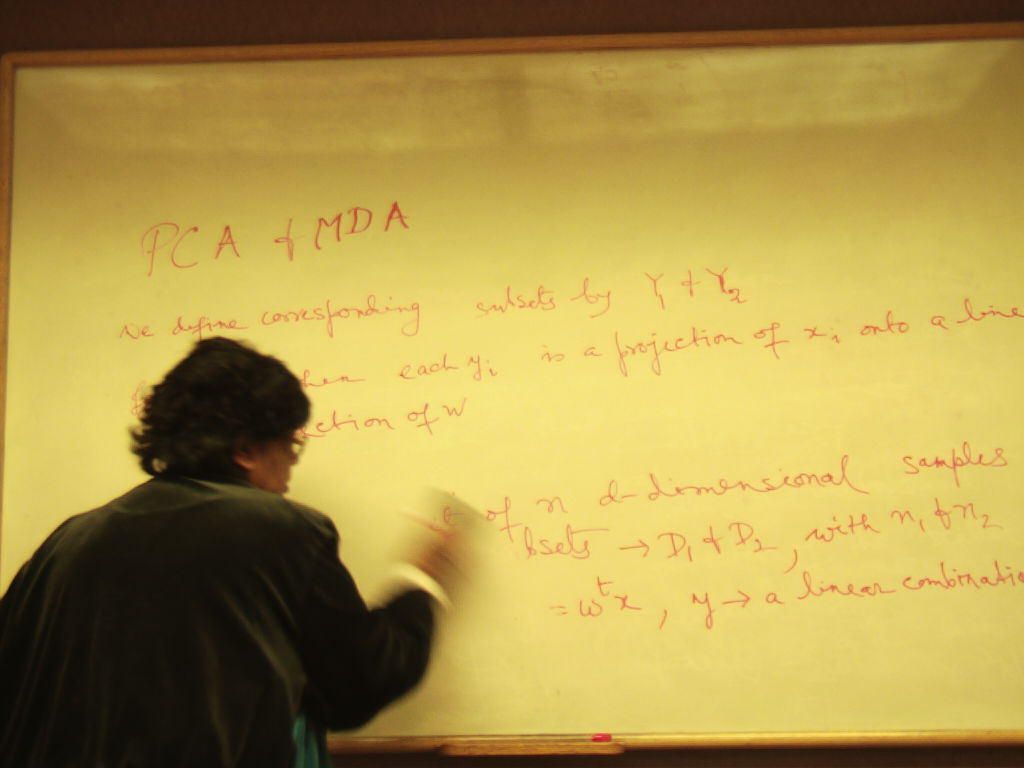 PCA & MDA
We define corresponding subsets by Y₁ & Y₂
each yᵢ is a projection of xᵢ onto a line
of w
of n d-dimensional samples
→ D₁ & D₂, with n₁ & n₂
= wᵗx, y → a linear